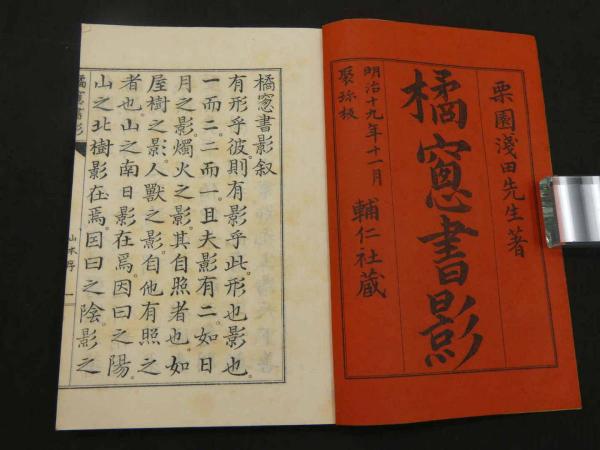 栗園淺田先生著
橘窻書影
明治十九年十一月 輔仁社蔵
聚珍板
橘窻書影叙
有形乎彼則有影乎此形也影也
一而二二而一且夫影有二如日
月之影燭火之影其自照者也如
屋樹之影人獣之影自他有照之
者也山之南日影在焉因曰之陽
山之北樹影在焉因曰之陰影之
橘窻書影
山本序
一